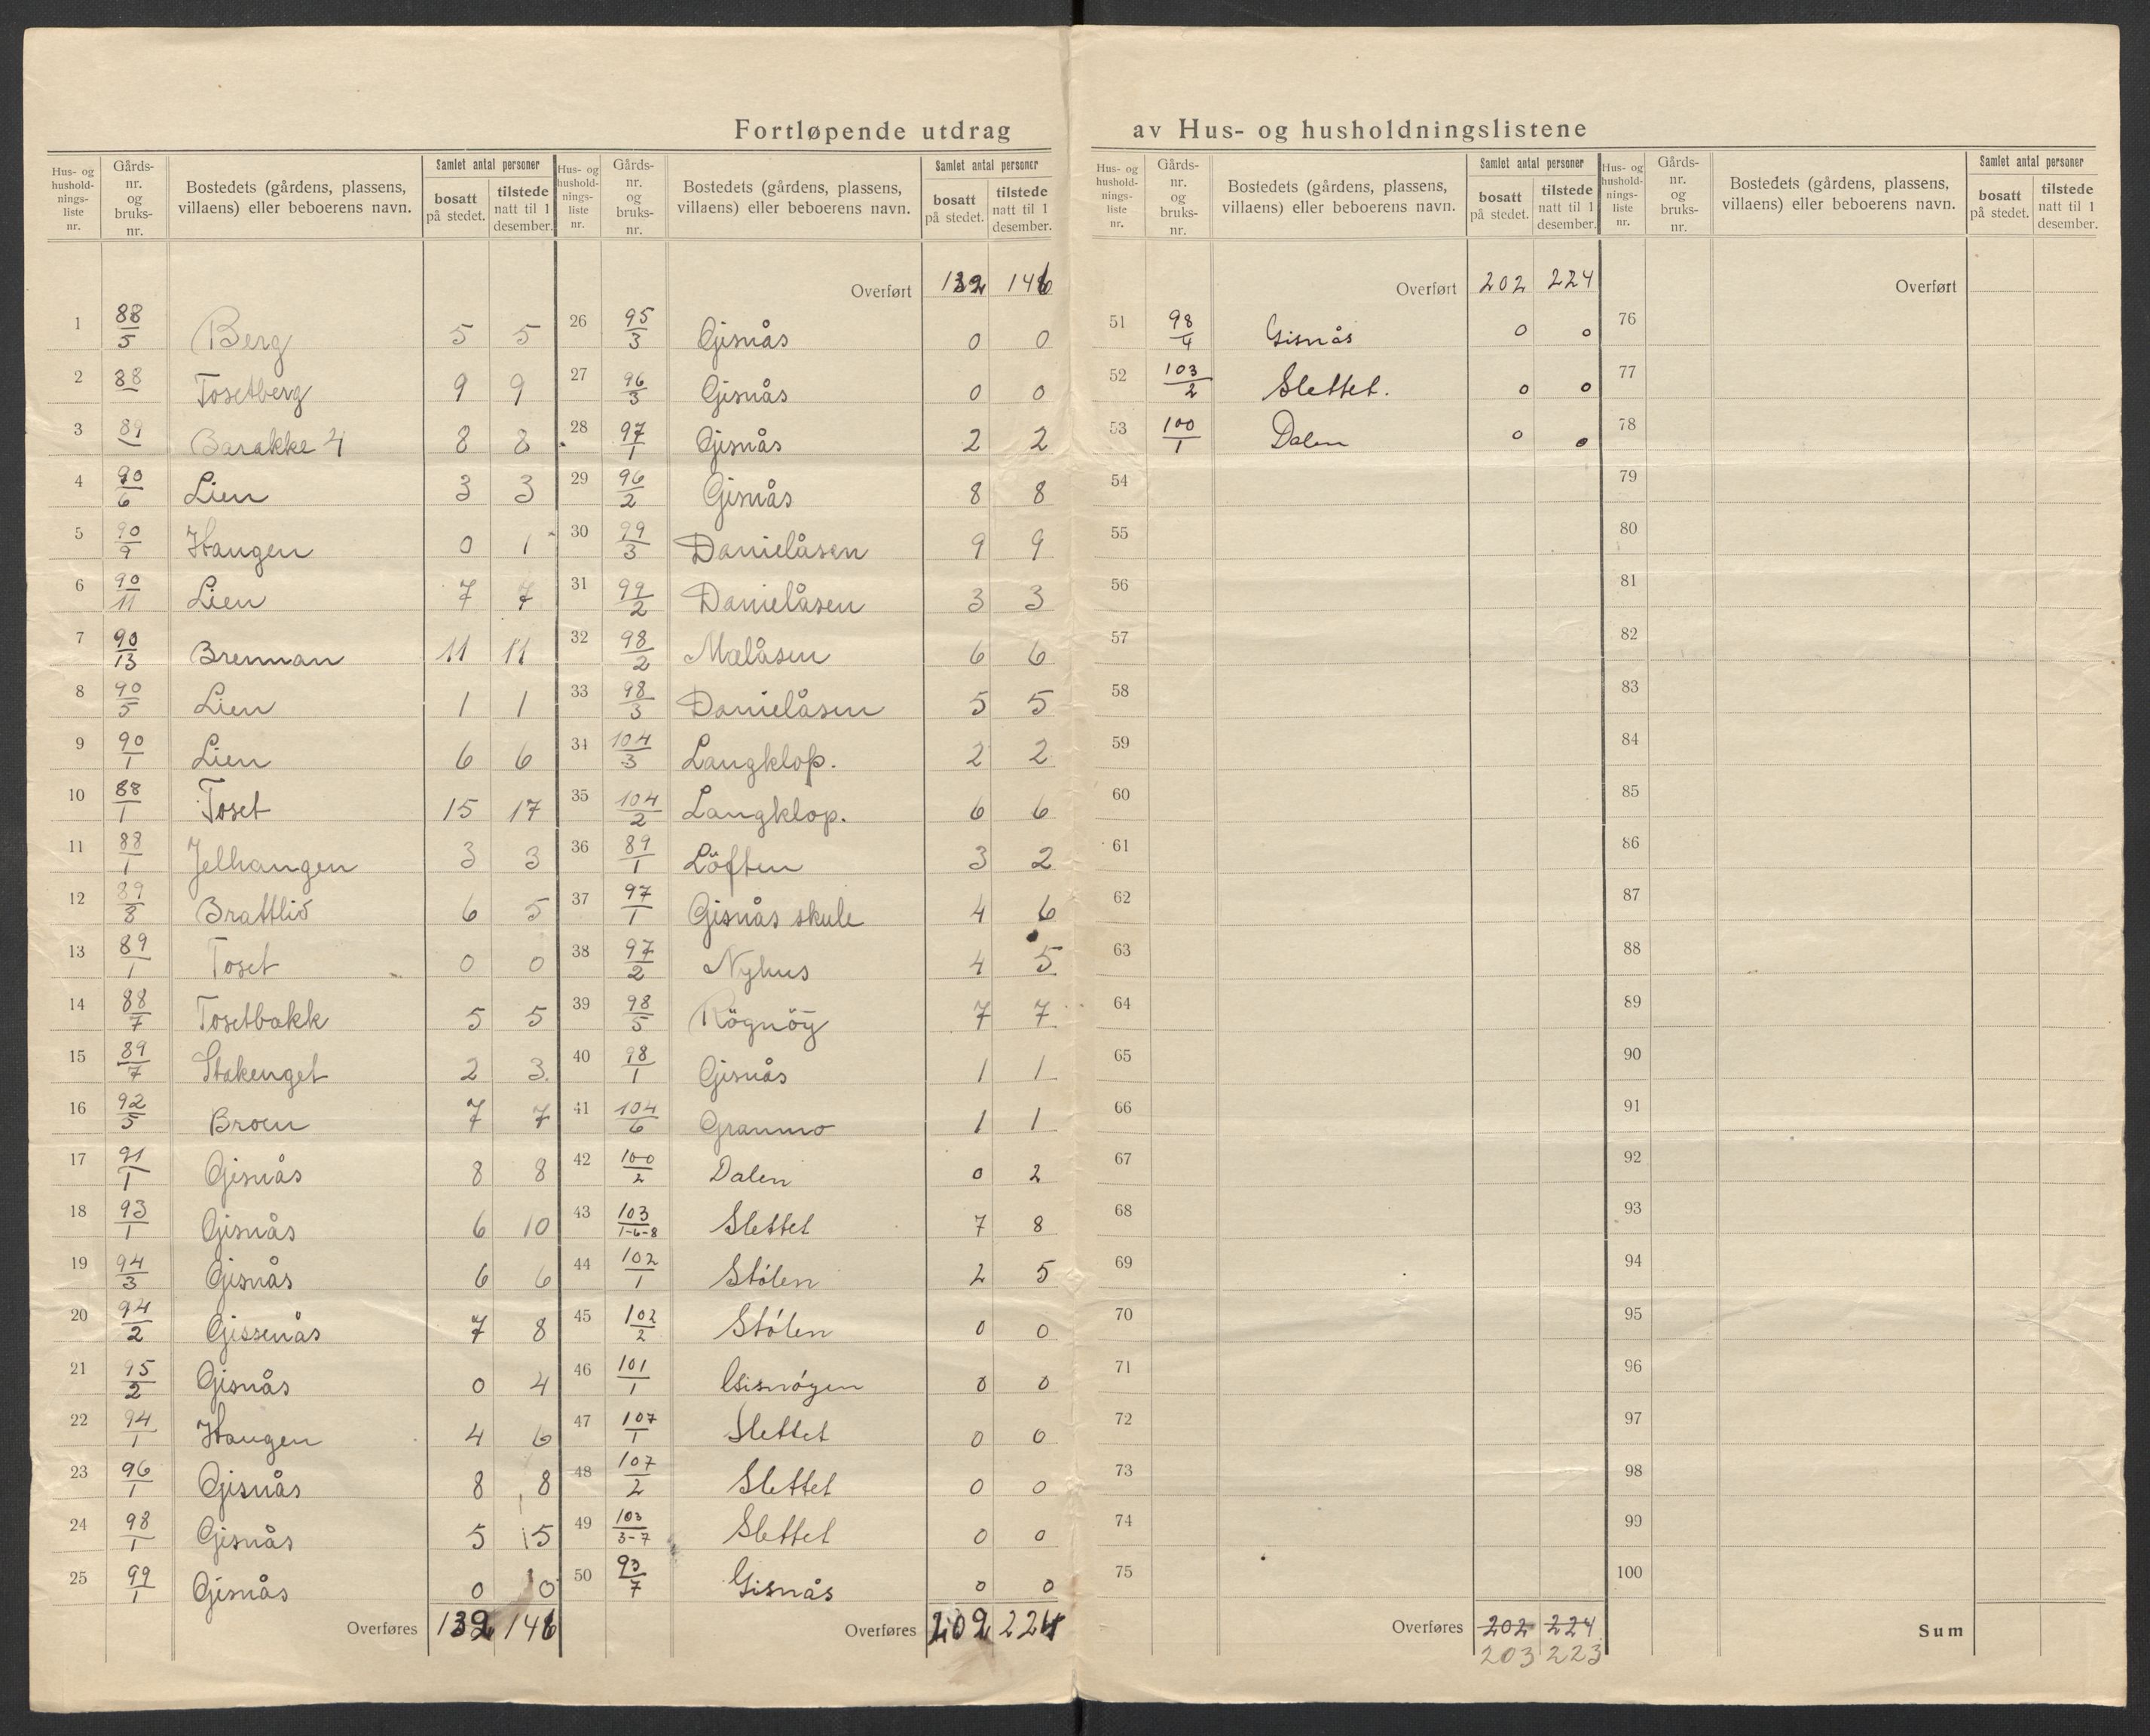 Fortløpende utdrag av Hus- og husholdningslistene
Hus- og husholdnings-liste nr. | Gårds-nr. og bruks-nr. | Bostedets (gårdens, plassens, villaens) eller beboerens navn. | Samlet antal personer | bosatt på stedet. | tilstede natt til 1 desember.
1 88/5 Berg 5 5
2 88/ Tosetberg 9 9
3 89/ Barakke 4 8 8
4 90/6 Lien 3 3
5 90/9 Haugen 0 1
6 90/11 Lien 7 7
7 90/13 Brennan 11 11
8 90/5 Lien 1 1
9 90/1 Lien 6 6
10 88/1 Toset 15 17
11 88/1 Jelhaugen 3 3
12 89/8 Brattlid 6 5
13 89/1 Toset 0 0
14 88/7 Tosetbakk 5 5
15 89/7 Stakenget 2 3
16 92/5 Broen 7 7
17 91/1 Gisnås 8 8
18 93/1 Gisnås 6 10
19 94/3 Gisnås 6 6
20 94/2 Gissenås 7 8
21 95/2 Gisnås 0 4
22 94/1 Haugen 4 6
23 96/1 Gisnås 8 8
24 98/1 Gisnås 5 5
25 99/1 Gisnås 0 0
Overføres 132 146
Hus- og husholdnings-liste nr. | Gårds-nr. og bruks-nr. | Bostedets (gårdens, plassens, villaens) eller beboerens navn. | Samlet antal personer | bosatt på stedet. | tilstede natt til 1 desember.
Overført 132 146
26 95/3 Gisnås 0 0
27 96/3 Gisnås 0 0
28 97/1 Gisnås 2 2
29 96/2 Gisnås 8 8
30 99/3 Danielåsen 9 9
31 99/2 Danielåsen 3 3
32 98/2 Malåsen 6 6
33 98/3 Danielåsen 5 5
34 104/3 Langklop. 2 2
35 104/2 Langklop. 6 6
36 89/1 Löften 3 2
37 97/1 Gisnås skule 4 6
38 97/2 Nyhus 4 5
39 98/5 Rögnög 7 7
40 98/1 Gisnås 1 1
41 104/6 Granmo 1 1
42 100/2 Dalen 0 2
43 103/1-6-8 Slettet 7 8
44 102/1 Stólen 2 5
45 102/2 Stólen 0 0
46 101/1 Gisnógen 0 0
47 107/1 Slettet 0 0
48 107/2 Slettet 0 0
49 103/3-7 Slettet 0 0
50 93/7 Gisnås 0 0
Overføres 202 224
Hus- og husholdnings-liste nr. | Gårds-nr. og bruks-nr. | Bostedets (gårdens, plassens, villaens) eller beboerens navn. | Samlet antal personer | bosatt på stedet. | tilstede natt til 1 desember.
Overført 202 224
51 98/4 Gisnås 0 0
52 103/2 Slettet. 0 0
53 100/1 Dalen 0 0
54
55
56
57
58
59
60
61
62
63
64
65
66
67
68
69
70
71
72
73
74
75
Overføres 202 224
203 223
Hus- og husholdnings-liste nr. | Gårds-nr. og bruks-nr. | Bostedets (gårdens, plassens, villaens) eller beboerens navn. | Samlet antal personer | bosatt på stedet. | tilstede natt til 1 desember.
Overført
76
77
78
79
80
81
82
83
84
85
86
87
88
89
90
91
92
93
94
95
96
97
98
99
100
Sum